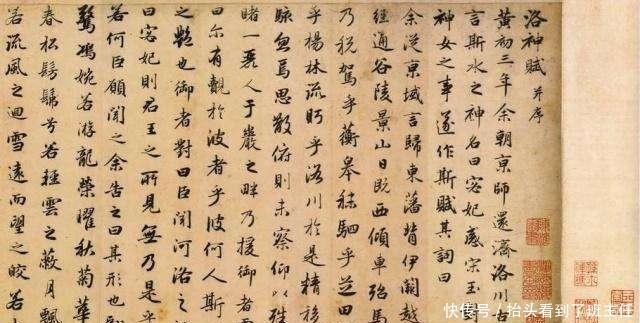 洛神賦 并序
黃初三年余朝京師還濟洛川古
言斯水之神名曰宓妃感宋玉
神女之事遂作斯賦其詞曰
余從京域言歸東藩背伊闕越
經通谷陵景山日既西傾車殆馬
乃稅駕乎蘅皋秣駟乎芝田
乎楊林流眄乎洛川於是精移
駭忽焉思散俯則未察仰以殊
睹一麗人于巖之畔乃援御者
曰尔有覿於彼者乎彼何人斯
之艷也御者對曰臣聞河洛之
曰宓妃則君王之所見無乃是乎
若何臣願聞之余告之曰其形也
驚鴻婉若游龍榮曜秋菊華
春松髣髴兮若輕雲之蔽月飄
若流風之迴雪遠而望之皎若
快传号/抬头看到了班主任